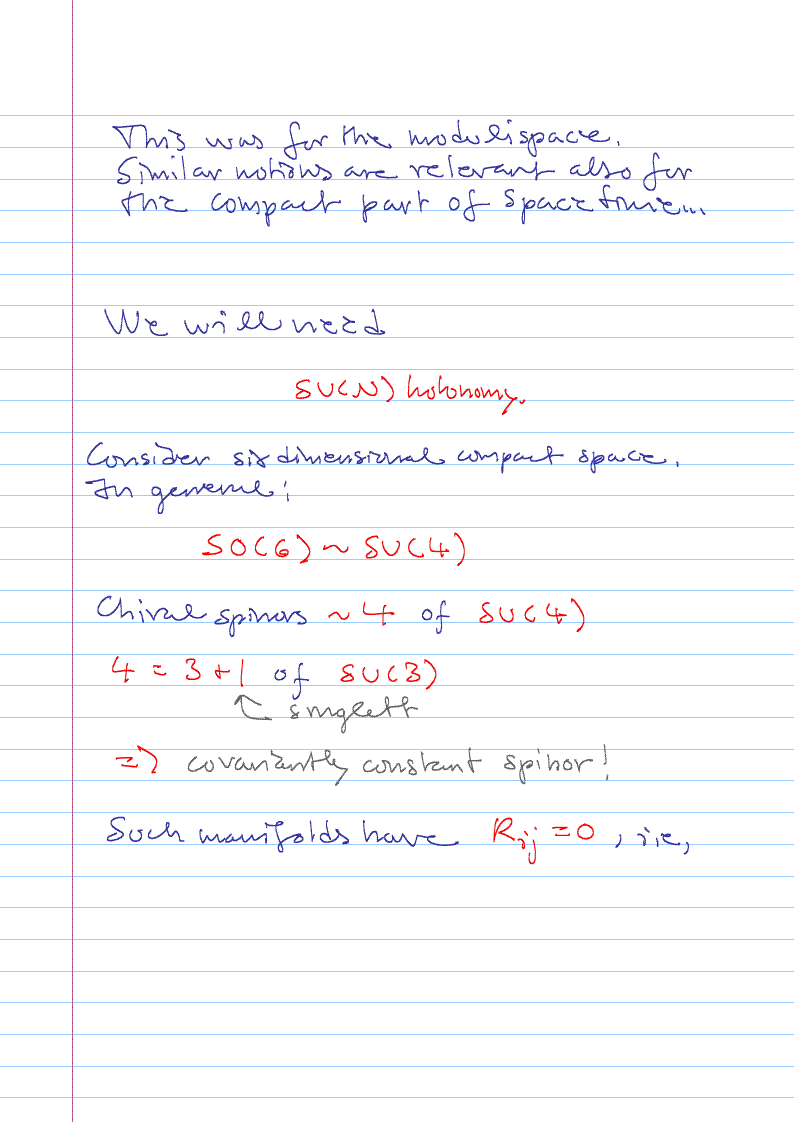 This was for the modulispace.
Similar notions are relevant also for
the compact part of spacetime...
We will need
SU(N) holonomy.
Consider six dimensional compact space.
In general:
SO(6) ~ SU(4)
Chiral spinors ~ 4 of SU(4)
4 = 3 + 1 of SU(3)
singlett
=> covariantly constant spinor!
Such manifolds have R_ij = 0, i.e,